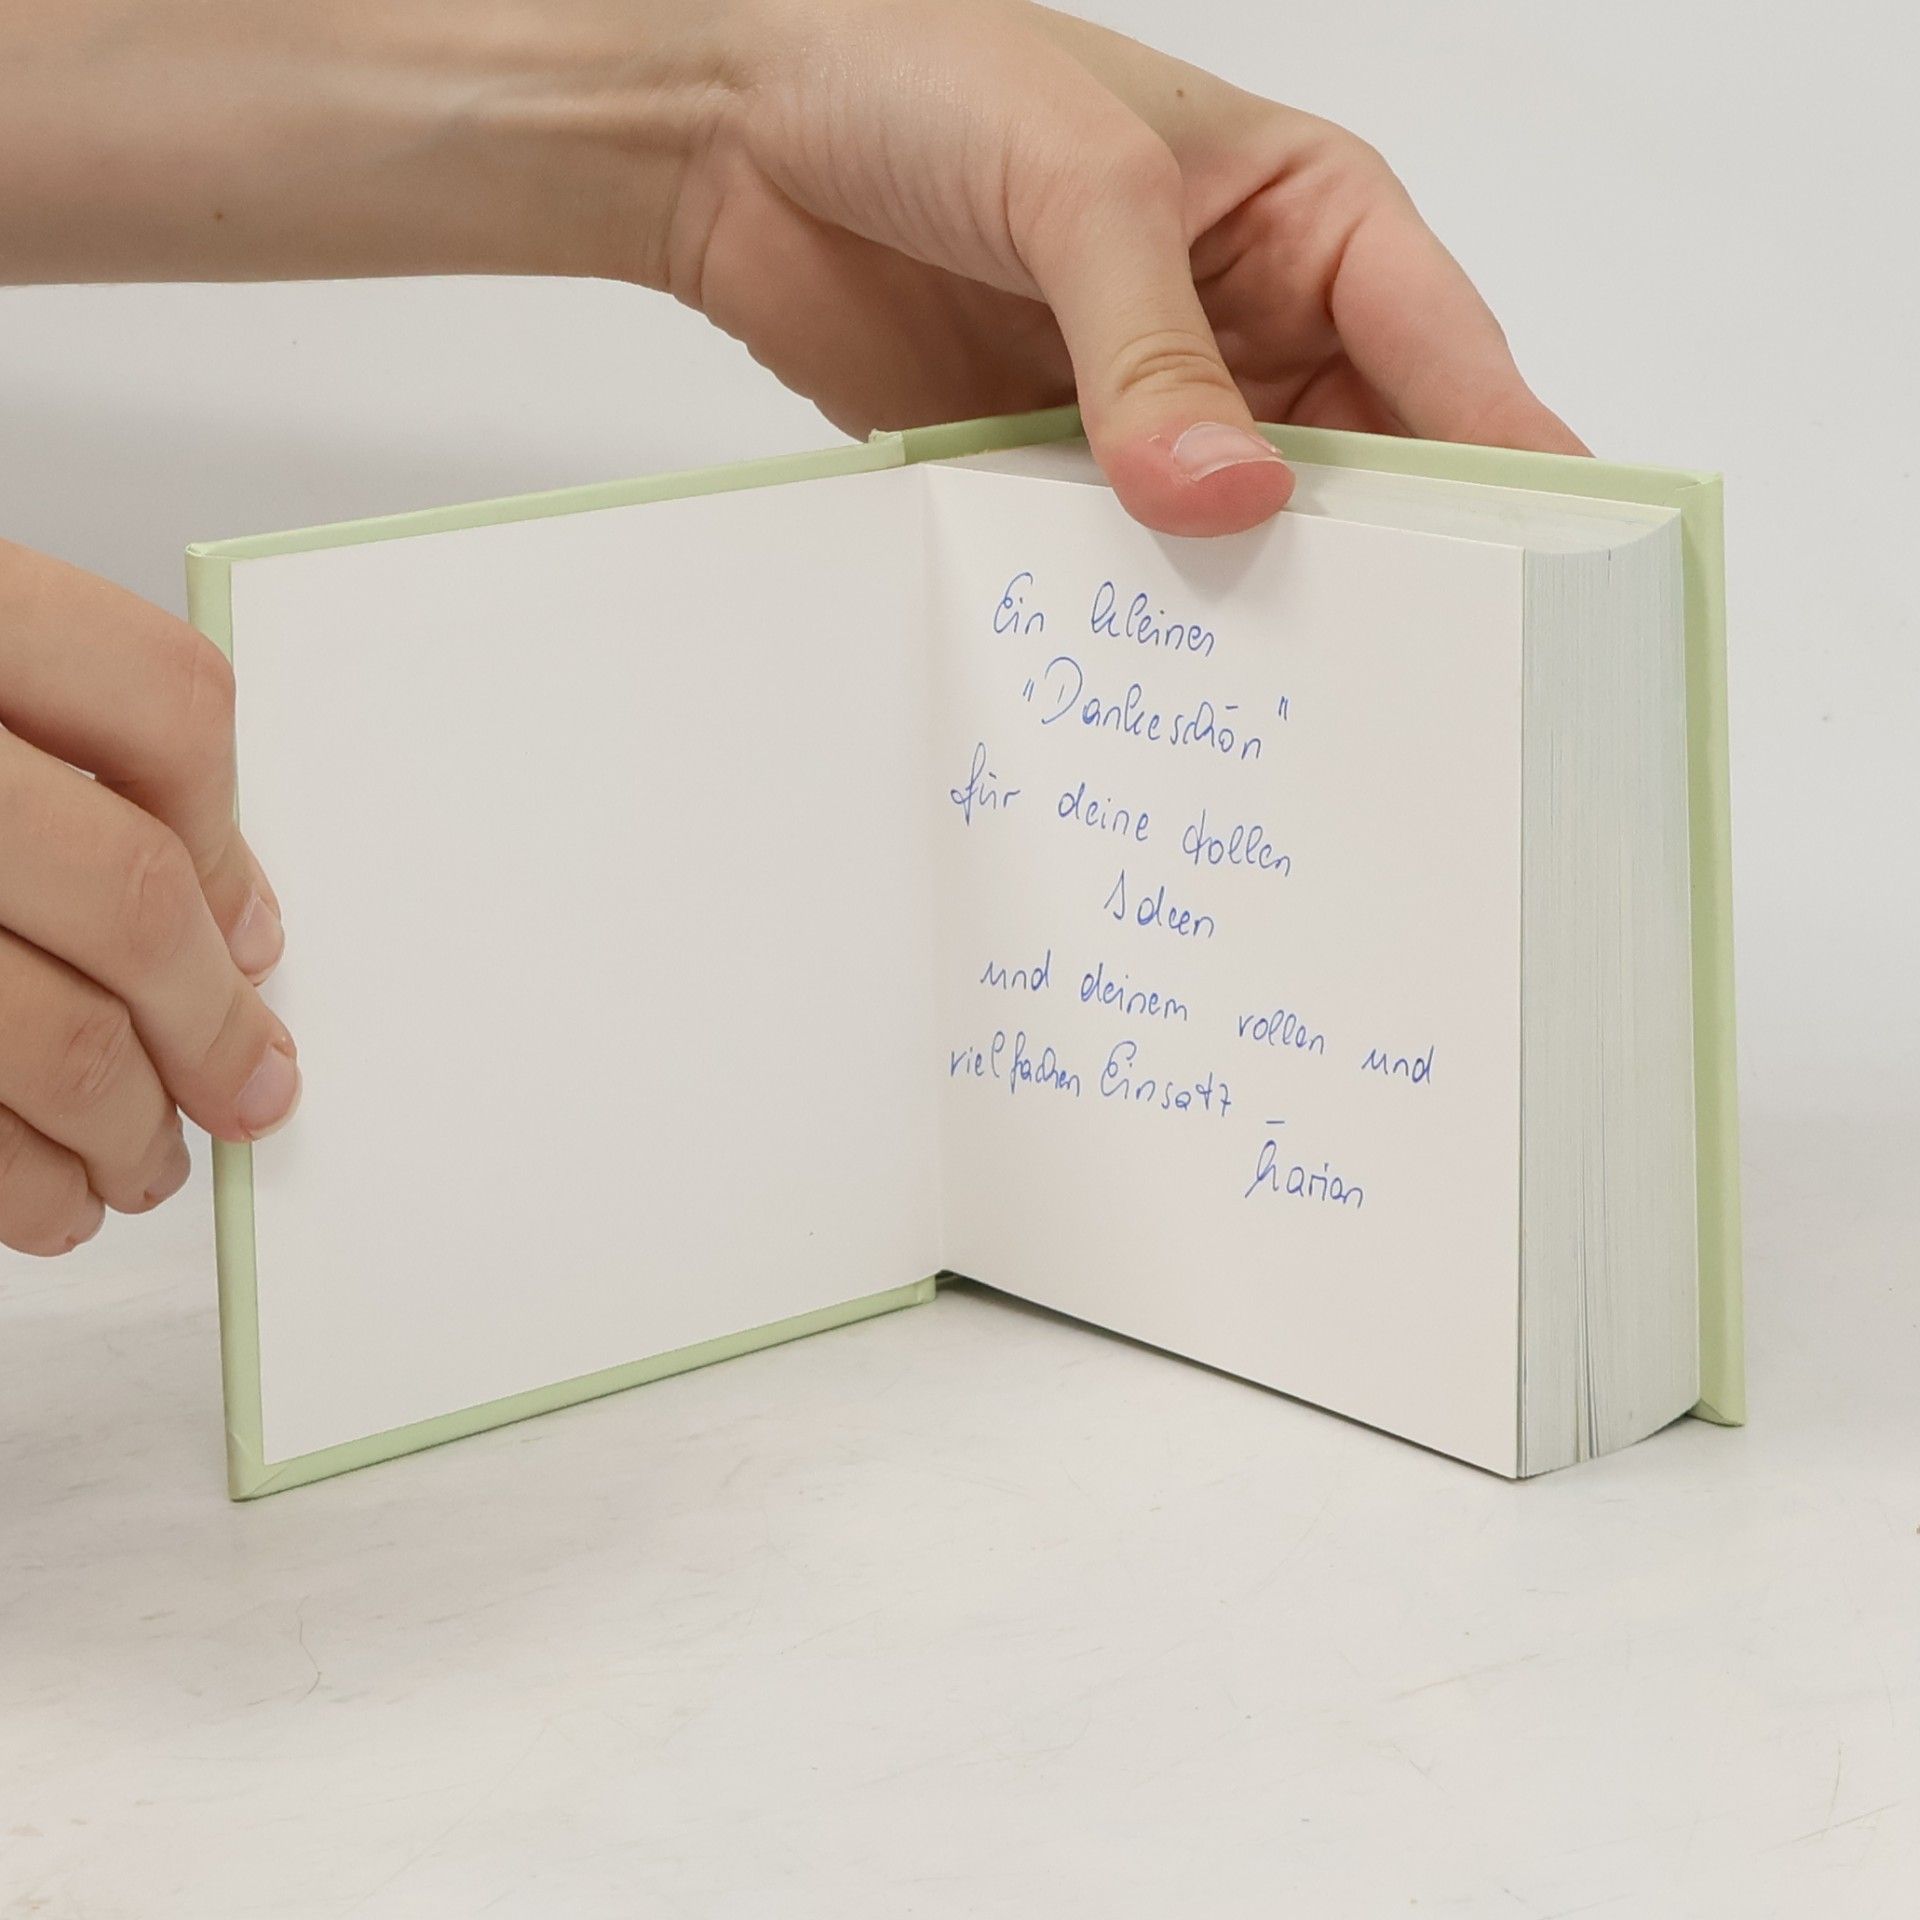 Ein kleines
"Dankeschön"
für deine tollen
Ideen
und deinem vollen und
vielfachen Einsatz –